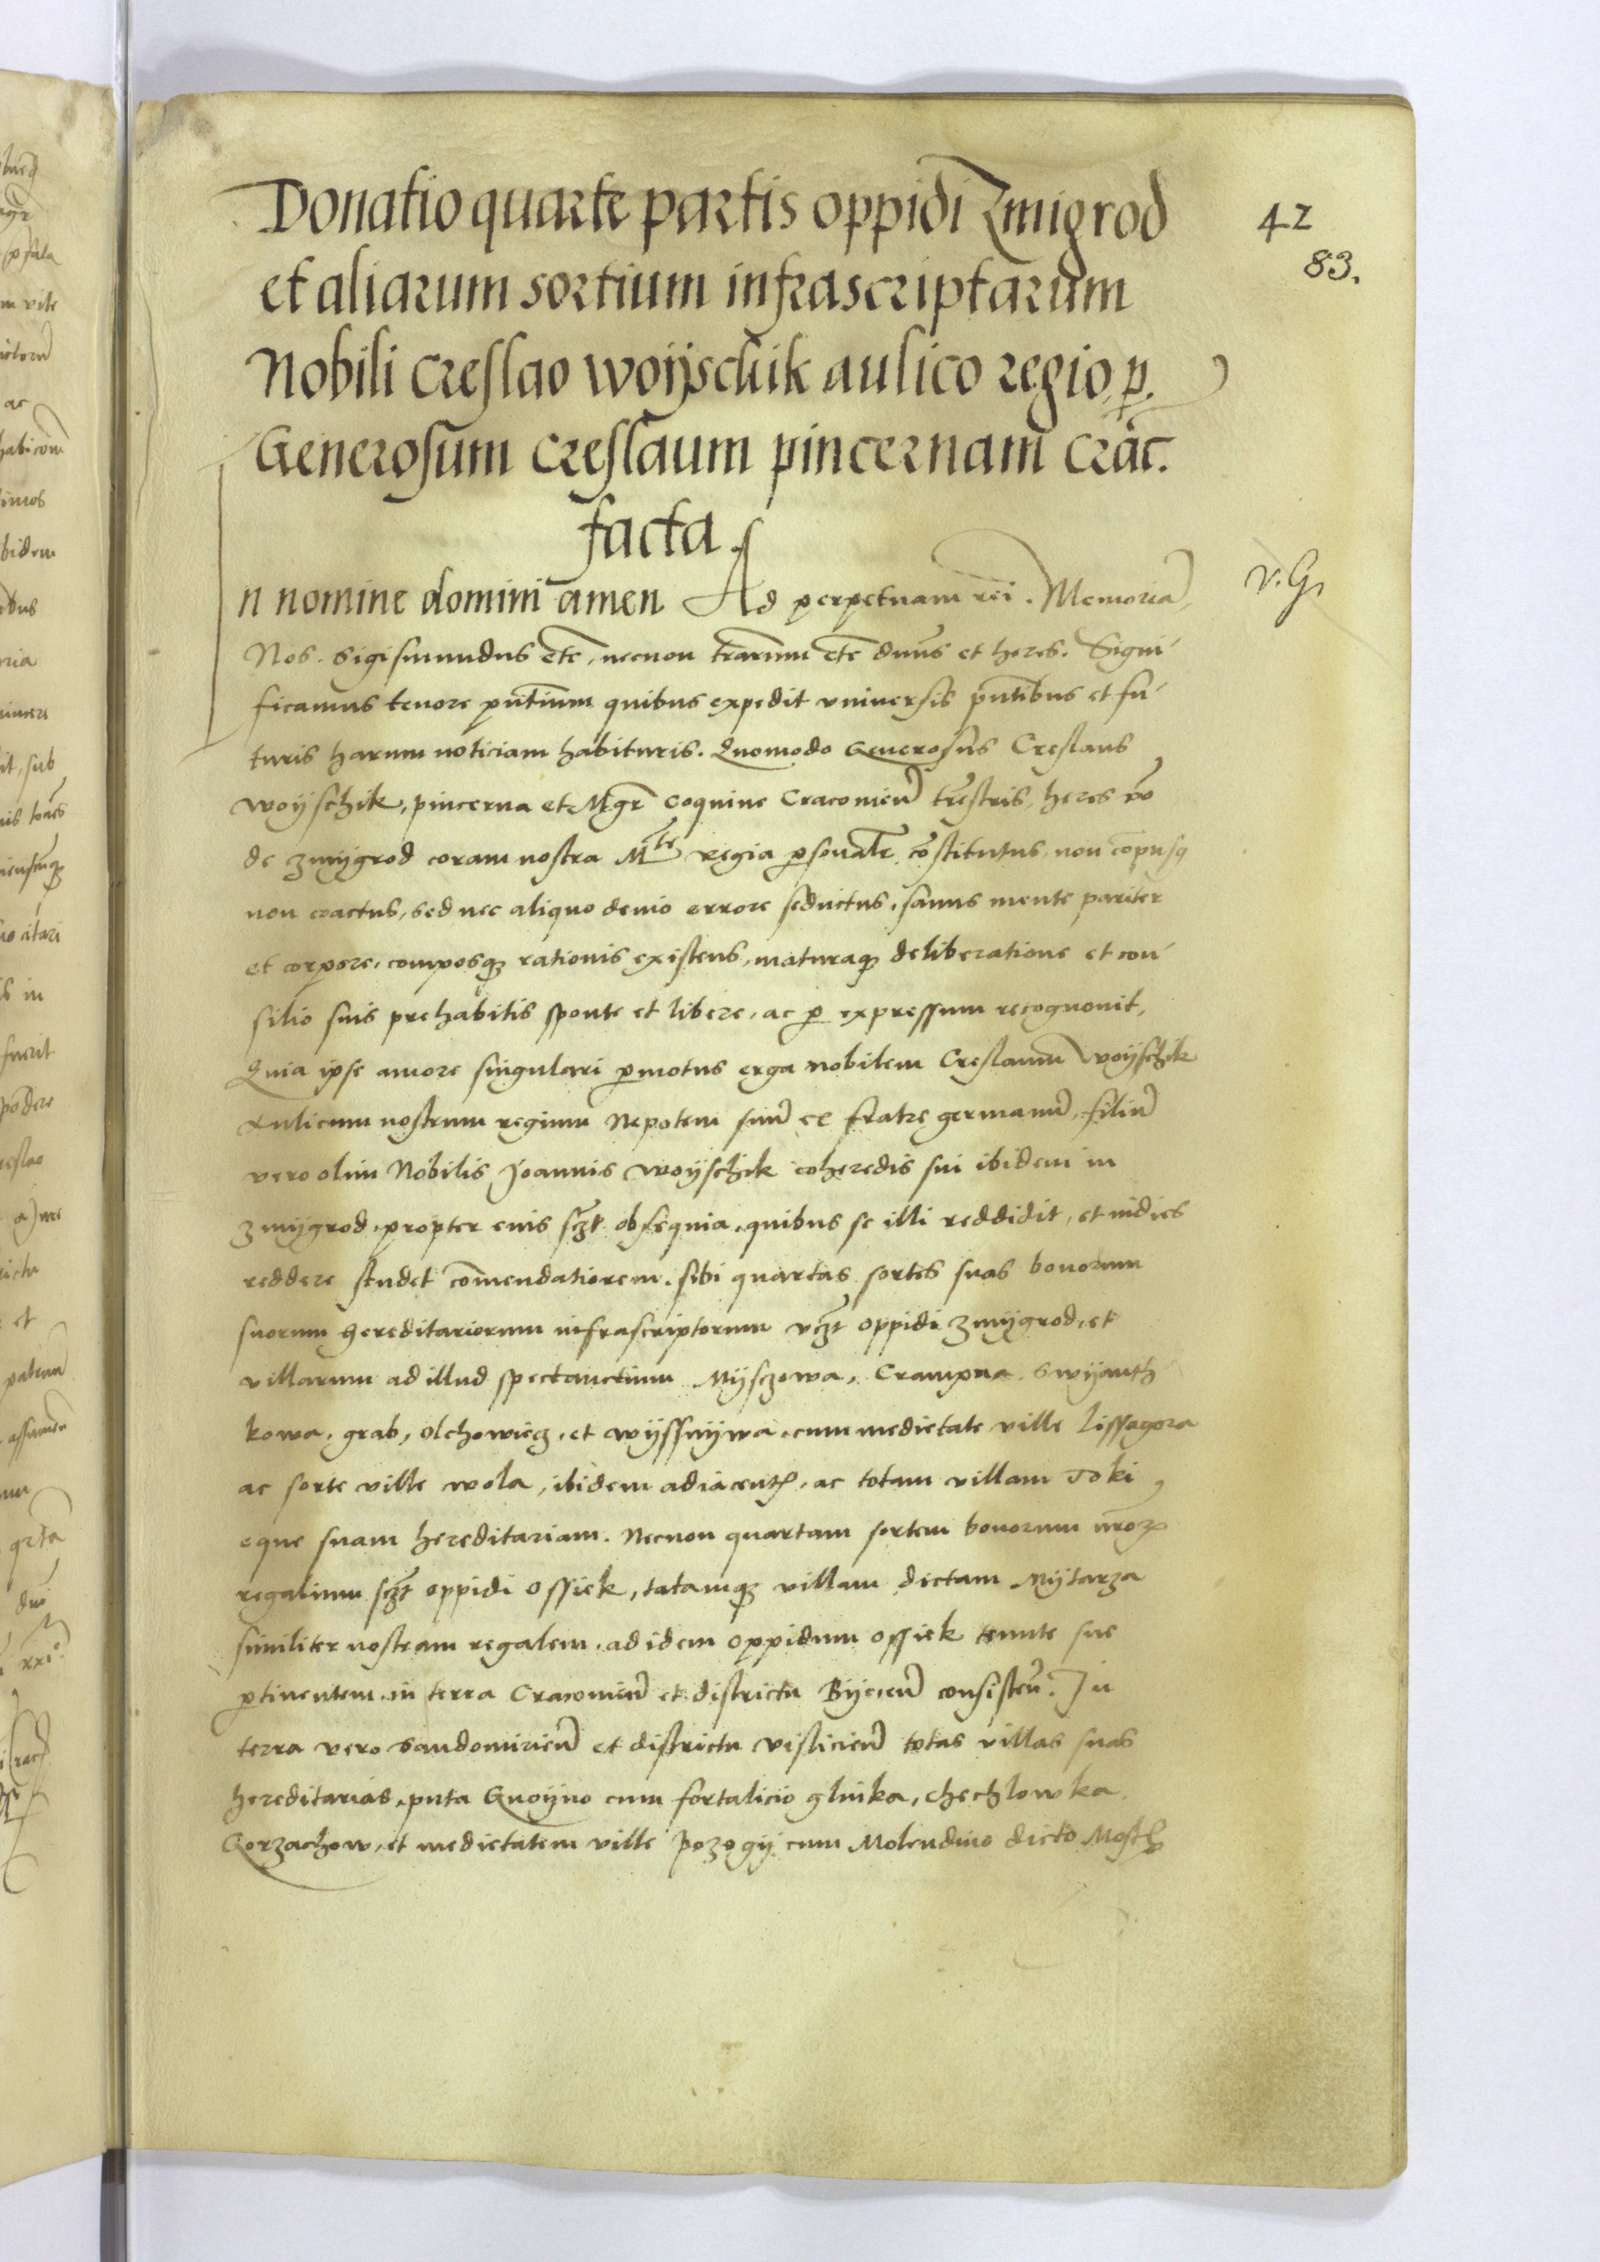 Donatio quarte partis oppidi Zmigrod
42
83.
et aliarum sortium infrascriptarum
Nobili Creslao Woijschik aulico regio, p̲
Generosum Creslaum pincernam Crac̃.
facta.
n nomine domini amen Ad perpetuam rei. Memoriã,
v. G
Nos. Sigismundus etc̃, necnon terrarũm etc̃ dñus et heres. Signi-
ficamus tenore pñtium quibus expedit vniversis pñtibus et fu-
turis harum noticiam habituris. Quomodo Generosus Creslaus
Woijschik, pincerna et Mgr̃ Coquine Cracovieñ tr̃estris, heres võ
de Zmijgrod coram nostra Mte regia p̲sonalr̃ cõstitutus, non compulsꝯ
non coactus, sed nec aliquo devio errore seductus, sanus mente pariter
et corpore, composqꝫ rationis existens, maturaqꝫ deliberatione et con-
silio suis prehabitis sponte et libere, ac p̲ expressum recognovit,
Quia ipse amore singulari p̲motus erga nobilem Creslaum Woijschik
Aulicum nostrum regium Nepotem suũ ex fratre germanũ, filiũ
vero olim Nobilis Joannis Woyschik coheredis sui ibidem in
Zmijgrod, propter eius sczt̃ obsequia, quibus se illi reddidit, et indies
reddere studet cõmendatiorem, sibi quartas sortes suas bonorum
suorum hereditariorum infrascriptorum vczt̃ oppidi Zmijgrod, et
villarum ad illud spectanctium Mijsczowa, Crampna, Swijanth
kowa, grab, Olchowiecz, et Wijssnijwa, cum medietate ville Lissagora
ac sorte ville Wola, ibidem adiacentꝭ, ac totam villam Toki
eque suam hereditariam. Necnon quartam sortem bonorum nr̃oꝝ
regalium sczt̃ oppidi Ossiek, totamqꝫ villam dictam Mijtarza
similiter nostram regalem, ad idem oppidum Ossiek tenute sue
p̲tinentem, in terra Cracovieñ et districtu Bijecieñ consisteñ. In
terra vero Sandomirieñ et districtu Vislicieñ totas villas suas
hereditarias, puta Gnoijno cum fortalicio glinka, Chechlowka,
Gorzachow, et medietatem ville Pozogij cum Molendino dicto Mosth